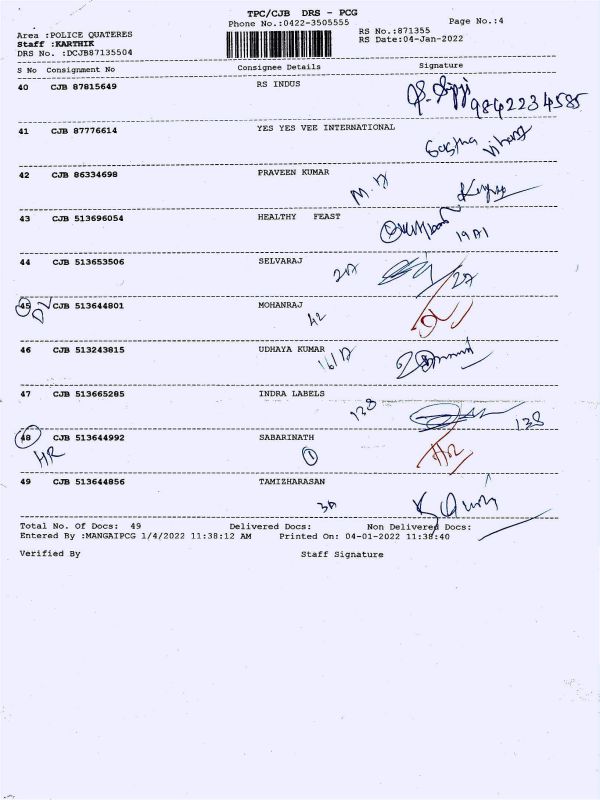 TPC/CJB DRS - PCG
Phone No.:0422-3505555
Page No.:4
Area :POLICE QUATERES
RS No.:871355
Staff :KARTHIK
RS Date:04-Jan-2022
DRS No. :DCJB87135504
S No Consignment No Consignee Details Signature
40 CJB 87815649 RS INDUS
9842234585
41 CJB 87776614 YES YES VEE INTERNATIONAL
42 CJB 86334698 PRAVEEN KUMAR
43 CJB 513696054 HEALTHY FEAST
44 CJB 513653506 SELVARAJ
45 CJB 513644801 MOHANRAJ
46 CJB 513243815 UDHAYA KUMAR
47 CJB 513665285 INDRA LABELS
138 138
48 CJB 513644992 SABARINATH
HR 1 HR
49 CJB 513644856 TAMIZHARASAN
Total No. Of Docs: 49 Delivered Docs: Non Delivered Docs:
Entered By :MANGAIPCG 1/4/2022 11:38:12 AM Printed On: 04-01-2022 11:38:40
Verified By Staff Signature